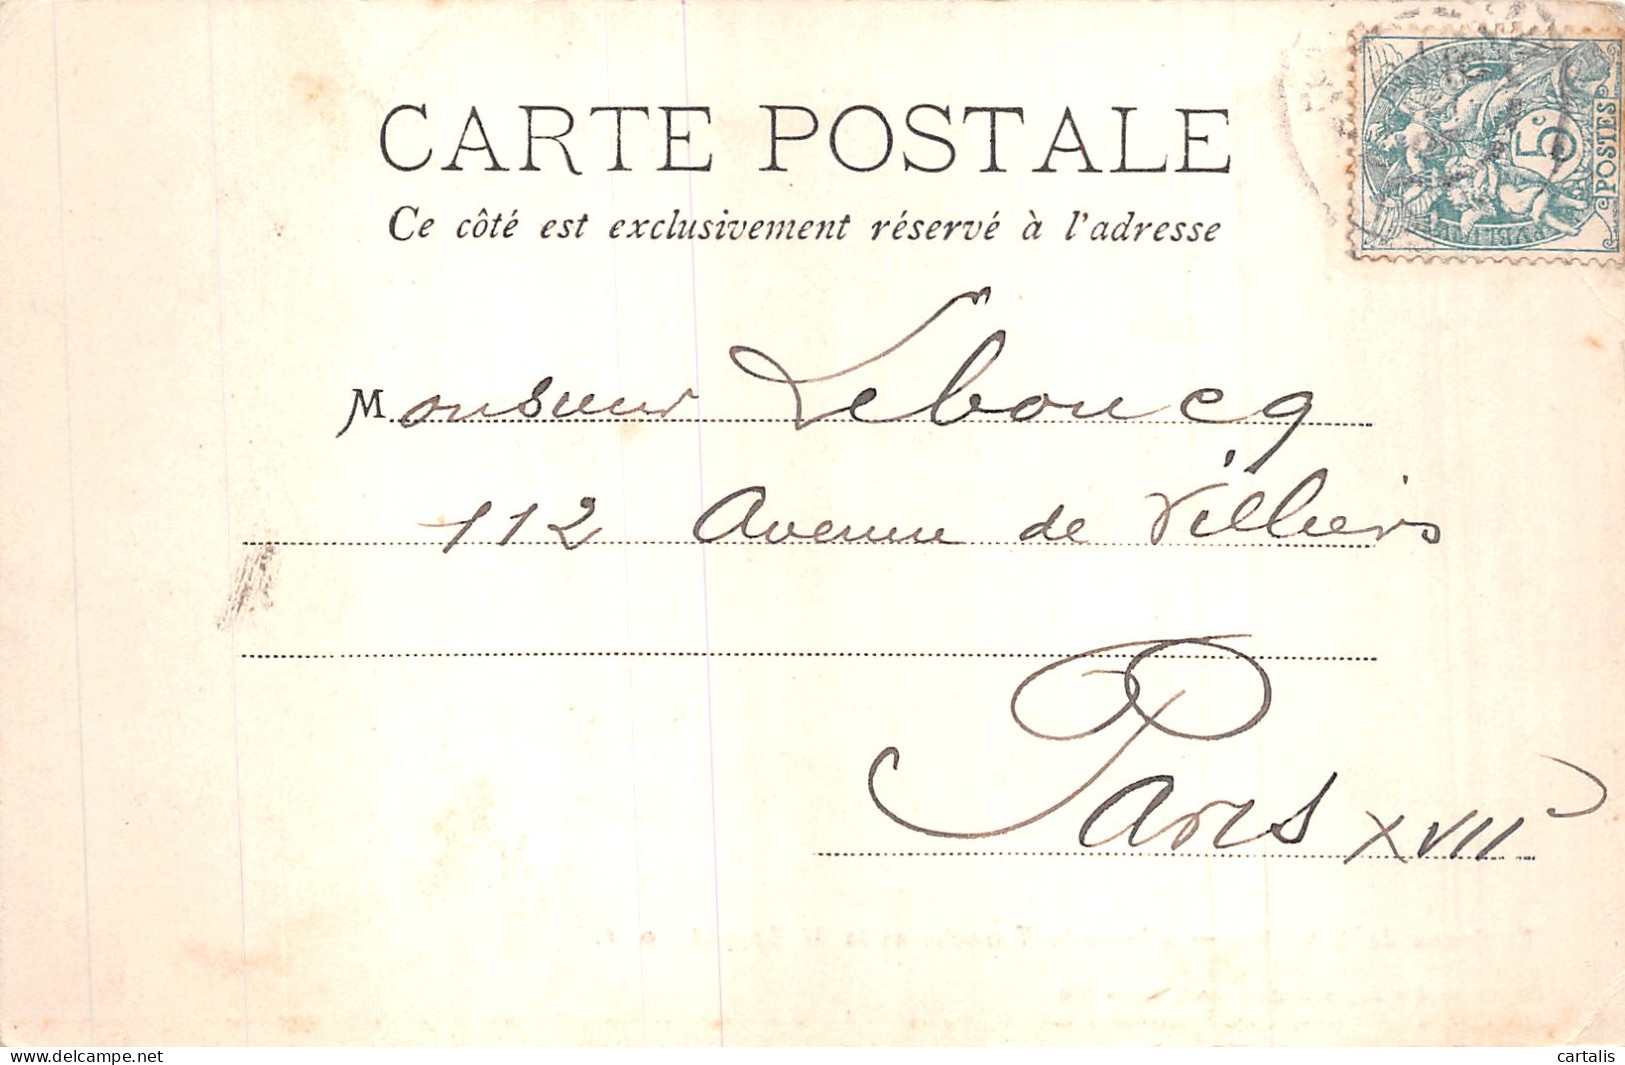 CARTE POSTALE
Ce côté est exclusivement réservé à l'adresse
5c
POSTES
Monsieur Leboucq
112 Avenue de Villiers
Paris XVIIe
cartalis
www.delcampe.net